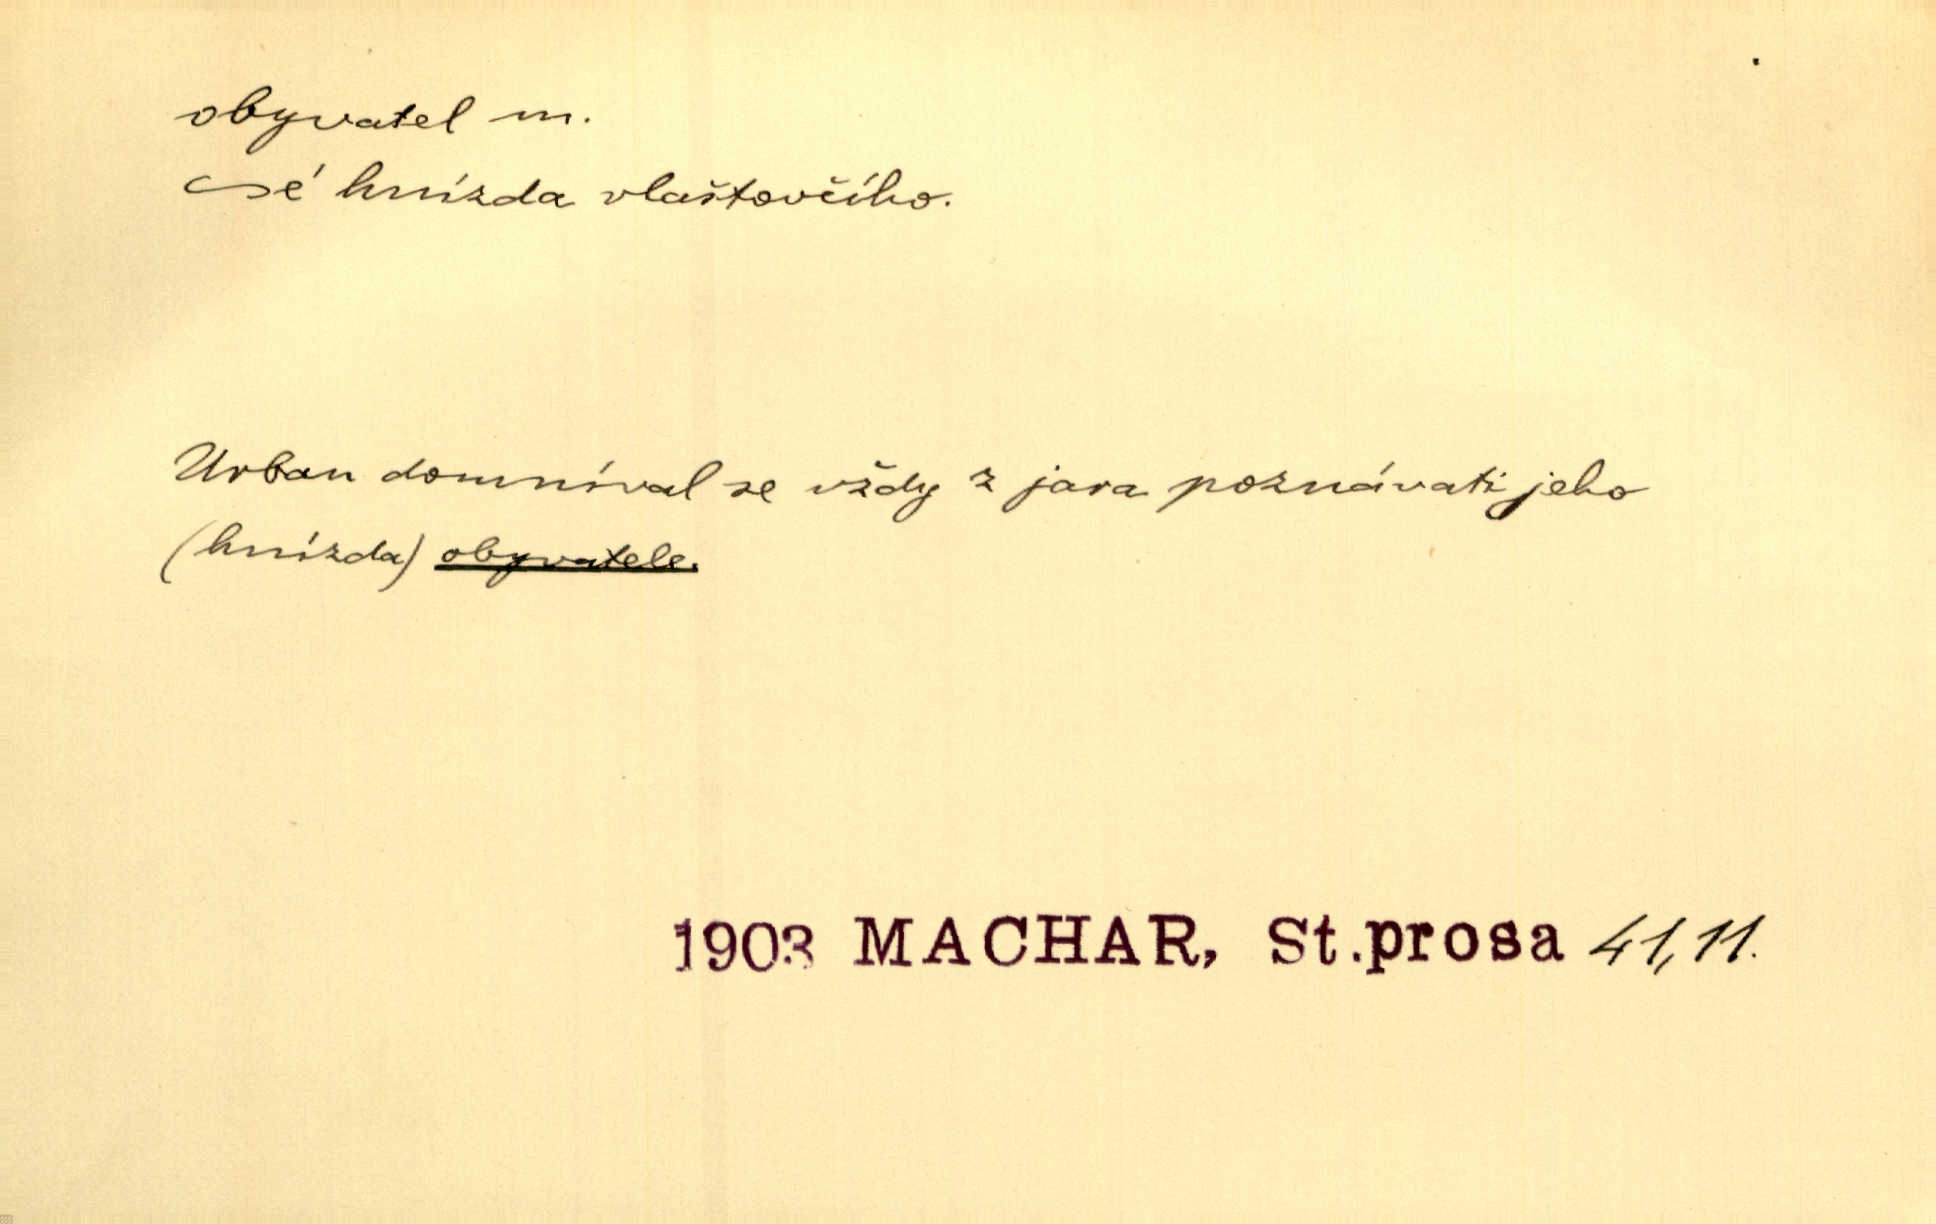 obyvatel m.
~é hnízda vlaštovčího.
Urban domníval se vždy z jara poznávati jeho
(hnízda) obyvatele.
1903 MACHAR, St.prosa 41,11.